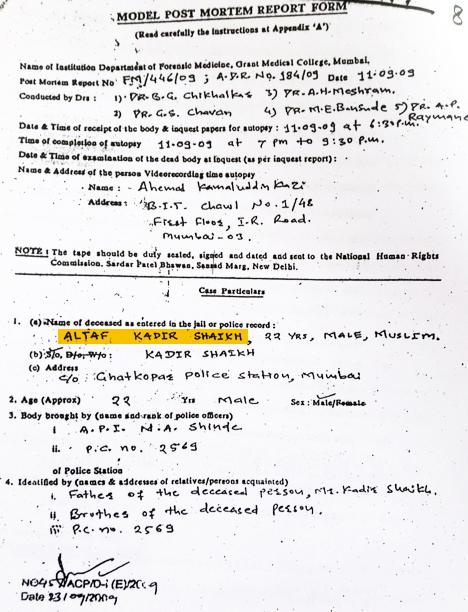 8
MODEL POST MORTEM REPORT FORM
(Read carefully the instructions at Appendix 'A')
Name of Institution Department of Forensic Medicine, Grant Medical College, Mumbai,
Post Mortem Report No FM/446/09 ; A.D.R. No. 184/09 Date 11-09-09
Conducted by Drs : 1) DR. B.G. Chikhalkar 3) DR. A.H. Meshram.
2) DR. G.S. Chavan 4) DR. M.E. Bansude 5) DR. A.P.
Date & Time of receipt of the body & inquest papers for autopsy : 11-09-09 at 6:35 P.m.
Time of completion of autopsy 11-09-09 at 7 pm to 9:30 p.m.
Date & Time of examination of the dead body at inquest (as per inquest report) :
Name & Address of the person Videorecording time autopsy
Name : - Ahemad Kamaluddin Kazi
Address : B.I.T. Chawl No. 1/48
First Floor, I.R. Road.
Mumbai-03.
NOTE : The tape should be duly sealed, signed and dated and sent to the National Human Rights
Commission, Sardar Patel Bhawan, Sansad Marg, New Delhi.
Case Particulars
1. (a) Name of deceased as entered in the jail or police record :
ALTAF KADIR SHAIKH, 22 YRS, MALE, MUSLIM.
(b) S/o, D/o, W/o : KADIR SHAIKH
(c) Address
C/o : Ghatkopar Police Station, Mumbai
2. Age (Approx) 22 Yrs Male Sex : Male/Female
3. Body brought by (name and rank of police officers)
i A.P.I. N.A. Shinde
ii. P.C. no. 2569
of Police Station
4. Identified by (names & addresses of relatives/persons acquainted)
i. Father of the deceased person, Mr. Kadir Shaikh.
ii. Brother of the deceased person.
iii P.C. no. 2569
ACP/D-i (E)/2009
Date 23/09/2009